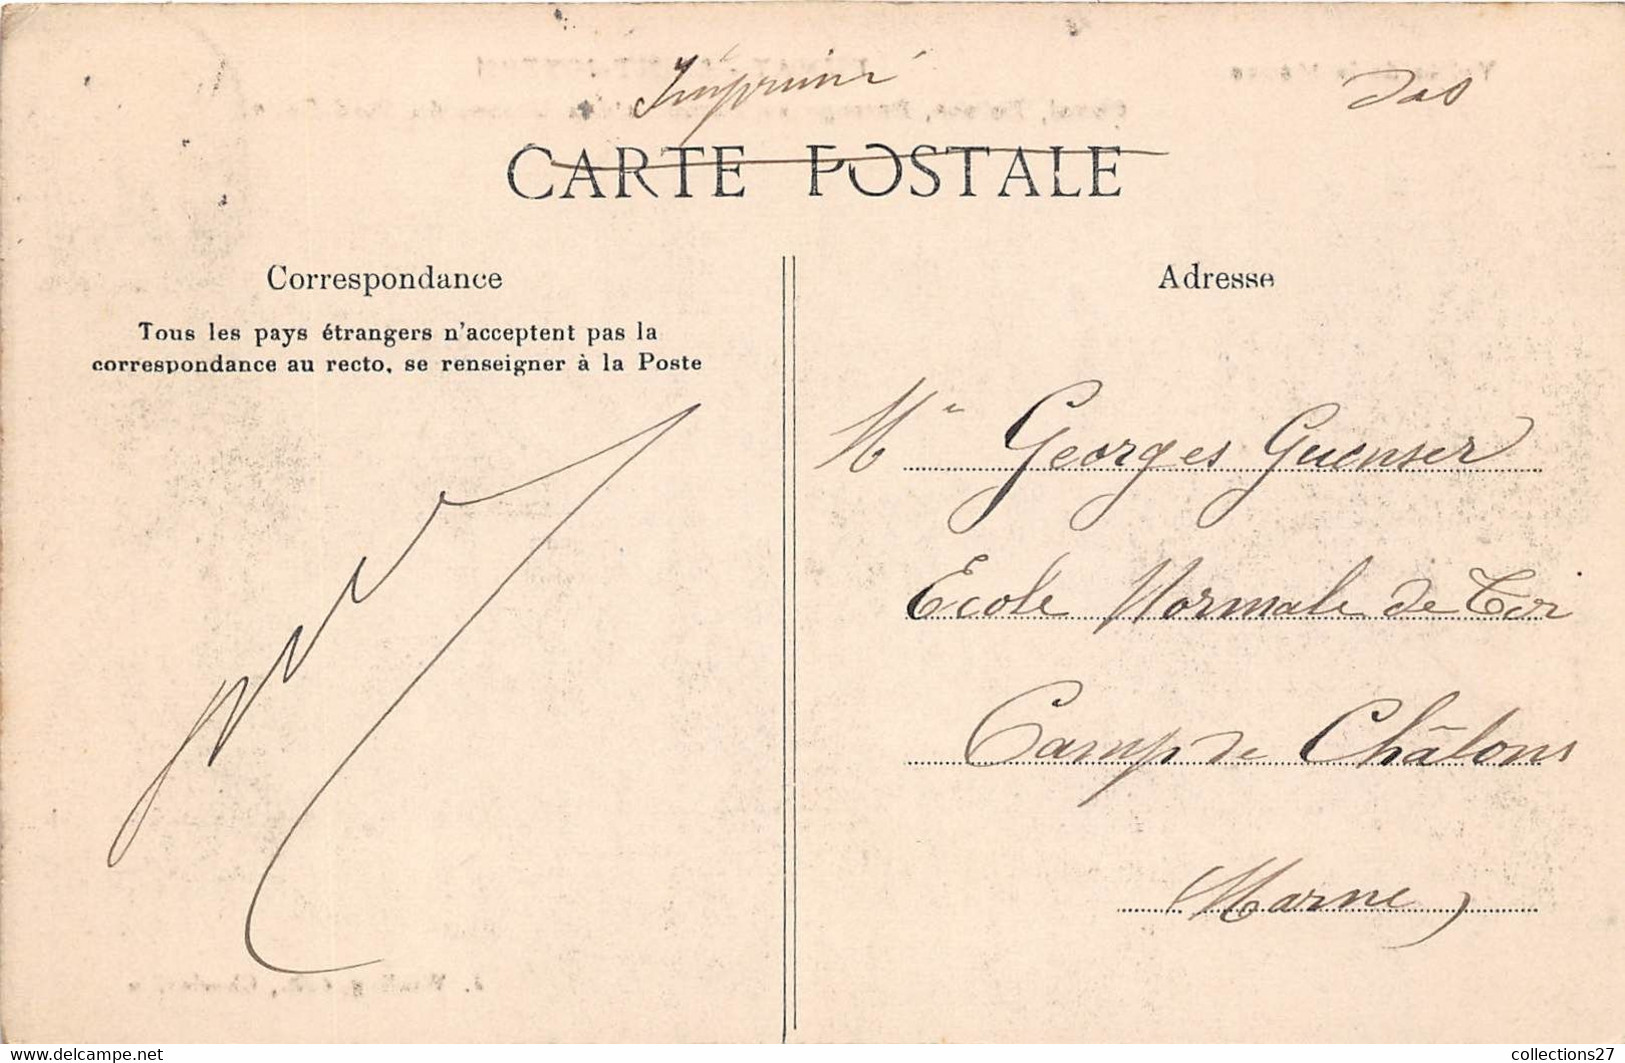 Imprimé
CARTE POSTALE
Correspondance
Adresse
Tous les pays étrangers n'acceptent pas la
correspondance au recto, se renseigner à la Poste
Mr Georges Guenser
Ecole Normale de Tir
Camp de Châlons
(Marne)
www.delcampe.net
collections27